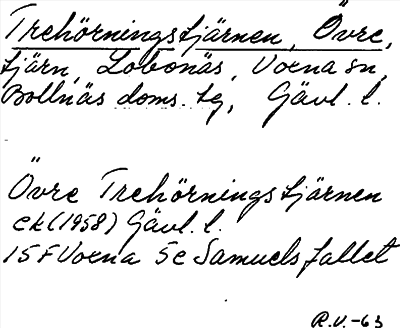 Trehörningstjärnen, Övre,
tjärn, Lobonäs, Voxna sn,
Bollnäs doms. tg, Gävl. l.
Övre Trehörningstjärnen
ek (1958) Gävl. l.
15 F Voxna 5c Samuelsfallet
R.V.-63